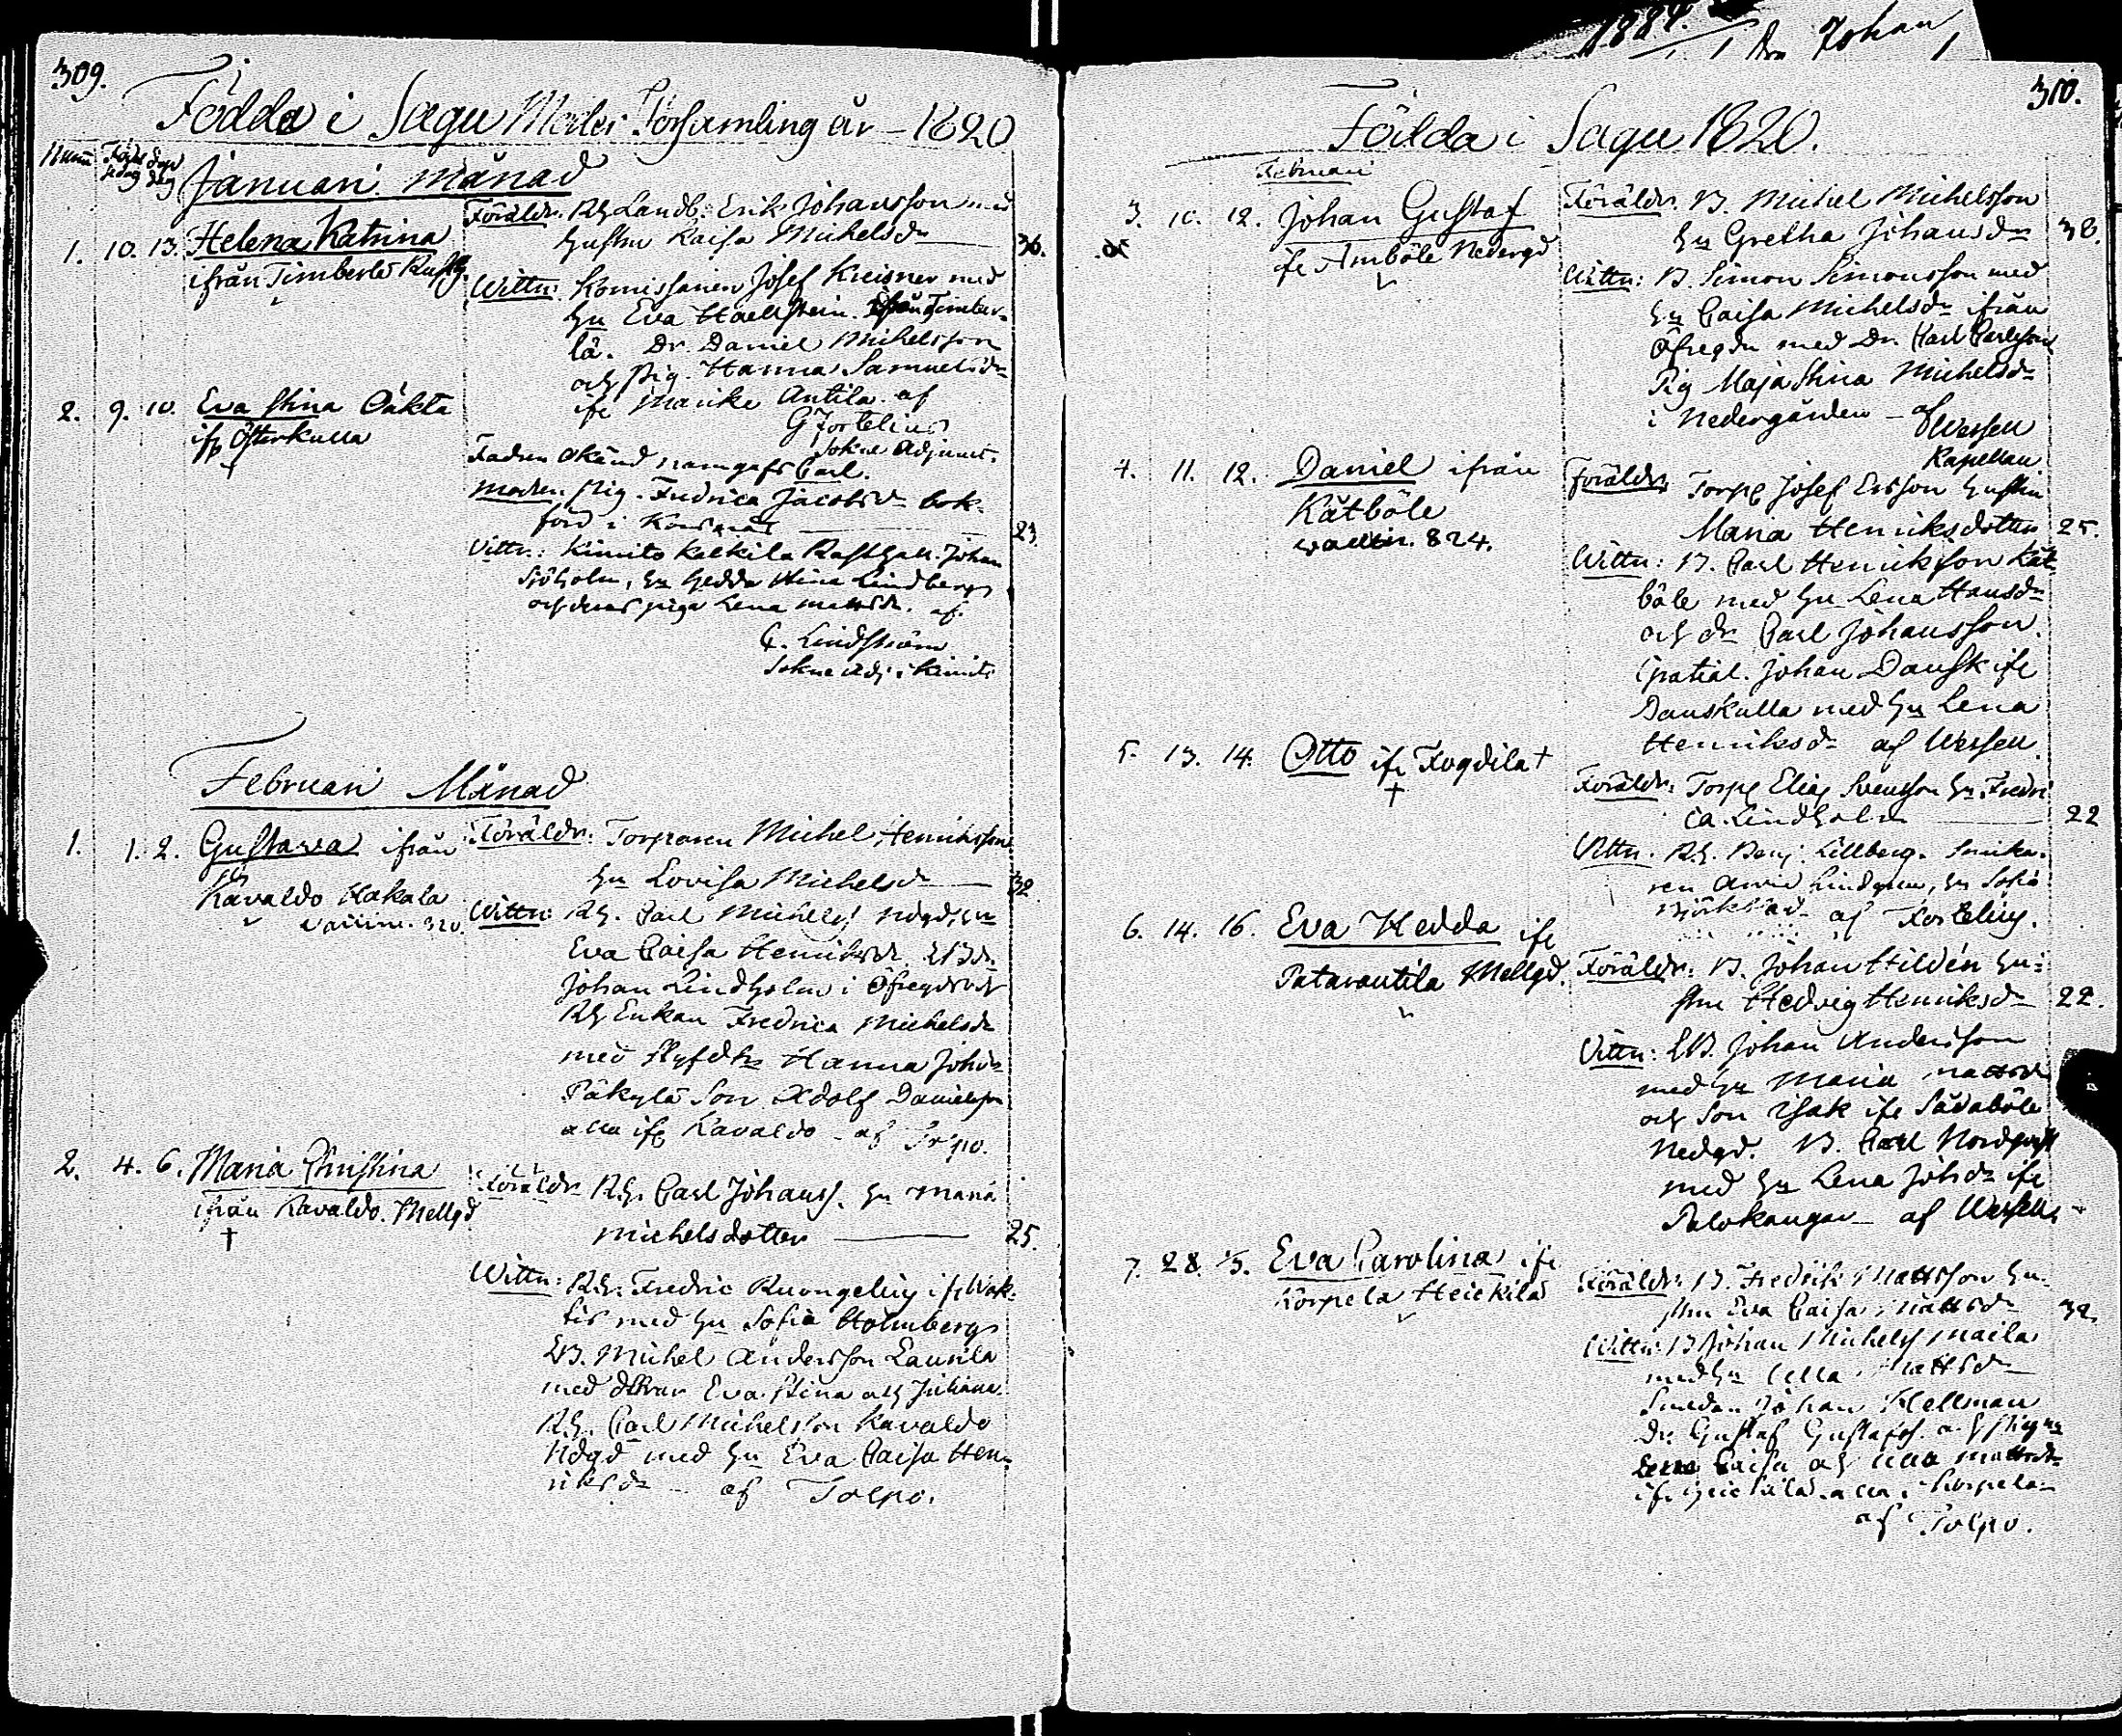 309.
Födda i Sagu Moder Församling år - 1820
Januari månad
1. 10. 13. Helena Katrina
ifrån Timberlä Rusth.
Föräldr. Rh Landb. Erik Johansson med
hustru Kaisa Michelsdr 36.
Wittn: Komissarien Josef Kreisner med
hu Eva Haellstein ifrån Timber-
lä. Dr. Daniel Michelsson
och pig. Hanna Samuelsdr
ifr Manike Antila. af
G Fortelius
Sokne Adjunct.
2. 9. 10. Eva Stina Oäkta
ifr Österkulla
Fadren okänd namgafs Carl.
Modren pig. Fredrica Jacobsdr bok-
förd i 23.
Vittn.: Kimito Kalkila Rusthåll. Johan
Sjöholm, hu Hedda Stina Lindberg
och deras piga Lena Mattsdr. af.
C. Lindström
Sokne Adj i Kimito
Februari Månad
1. 1. 2. Gustava ifrån
Kavaldo Kakala
Föräldr. Torparen Michel Henriksson
hu Lovisa Michelsdr 32
Wittn: Rh. Carl Michelss Ndgd hu
Eva Caisa Henriksdr LBdr.
Johan Lindholm i Öfregdr och
Rh Enkan Fredrica Michelsdr
med styfdtr Hanna Johdr
Päkylä Son Adolf Danielsson
alla ifr Kavaldo - af Tolpo.
2. 4. 6. Maria Christina
ifrån Kavaldo. Mellgd
†
Föräldr Rh. Carl Johanss. hu Maria
Michelsdotter 25.
Wittn: Rh. Fredric Ruongelius ifr Wok-
tis med hu Sofia Holmberg
LB. Michel Andersson Laurila
med döttrar Eva Stina och Juliana.
Rh. Carl Michelsson Kavaldo
Ndgd med hu Eva Caisa Hen-
riksdr - af Tolpo.
1884.
Dr Johan
310.
Födda i Sagu 1820.
Februari
3. 10. 12. Johan Gustaf
ifr Amböle Nedergd
Föräldr. B. Michel Michelsson
hu Gretha Johansdr 38.
Wittn: B. Simon Simonsson med
hu Caisa Michelsdr ifrån
Öfregdn med Dr. Carl Carlsson
Pig Maja Stina Michelsdr
i Nedergården - af Wessen
Kapellan
4. 11. 12. Daniel ifrån
Kätböle
824.
Föräldr Torp Josef Ersson hustru
Maria Henriksdotter 25.
Wittn: B. Carl Henriksson Kät-
böle med hu Lena Hansdr
och dr Carl Johansson.
Spatial. Johan Dansk ifr
Danskulla med hu Lena
Henriksdr af Wessen
5. 13. 14. Otto ifr Fogdila †
†
Föräldr: Torp Elias Svensson hu Fredri
ca Lindholm 22
Vittn. Rh. Benj. Lillberg. Snicka-
ren Arvid Lindgren, hu Sofia
af Fortelius.
6. 14. 16. Eva Hedda ifr
Patarautila Mellgd.
Föräldr: B. Johan Hildén hu-
stru Hedvig Henriksdr 22.
Vittn: LB. Johan Andersson
med hu Maria Mattsdr
och Son Isak ifr Sådaböle
Nedgd. B. Carl Nordqvist
med hu Lena Johdr ifr
Palokangar af Wessen
7. 28. 1/3. Eva Carolina ifr
Korpela Heickilä
Föräldr: B. Fredrik Mattsson hu-
stru Eva Caisa Mattsdr 32.
Wittn: B Johan Michelss Maila
med hu Ulla Mattsdr
Smeden Johan Hellman
Dr. Gustaf Gustafss. och pigan
Caisa och Ulla Mattsdr
ifr Heickilä. alla i Korpela
af Tolpo.